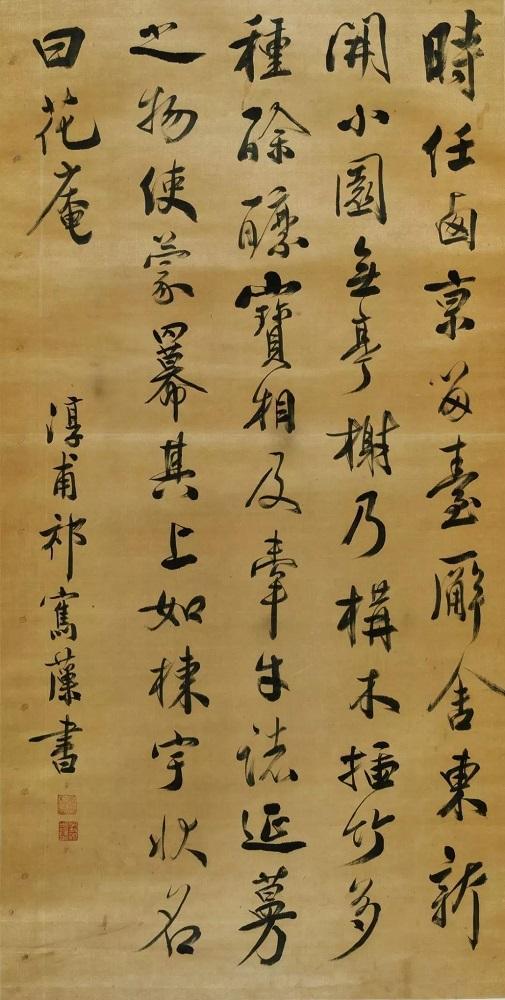 時任卥京留臺廨舍東新
開小園無亭榭乃構木插竹多
種酴醾寶相及牽牛諸延蔓
之物使蒙羃其上如棟宇狀名
曰花庵
淳甫祁寯藻書